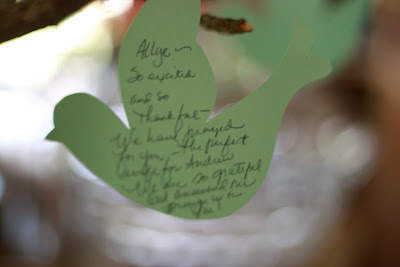 Allye -
So excited
and so
Thankful -
We have prayed
for you - The perfect
woman for Andrew
We are so grateful
God answered our
prayers
you